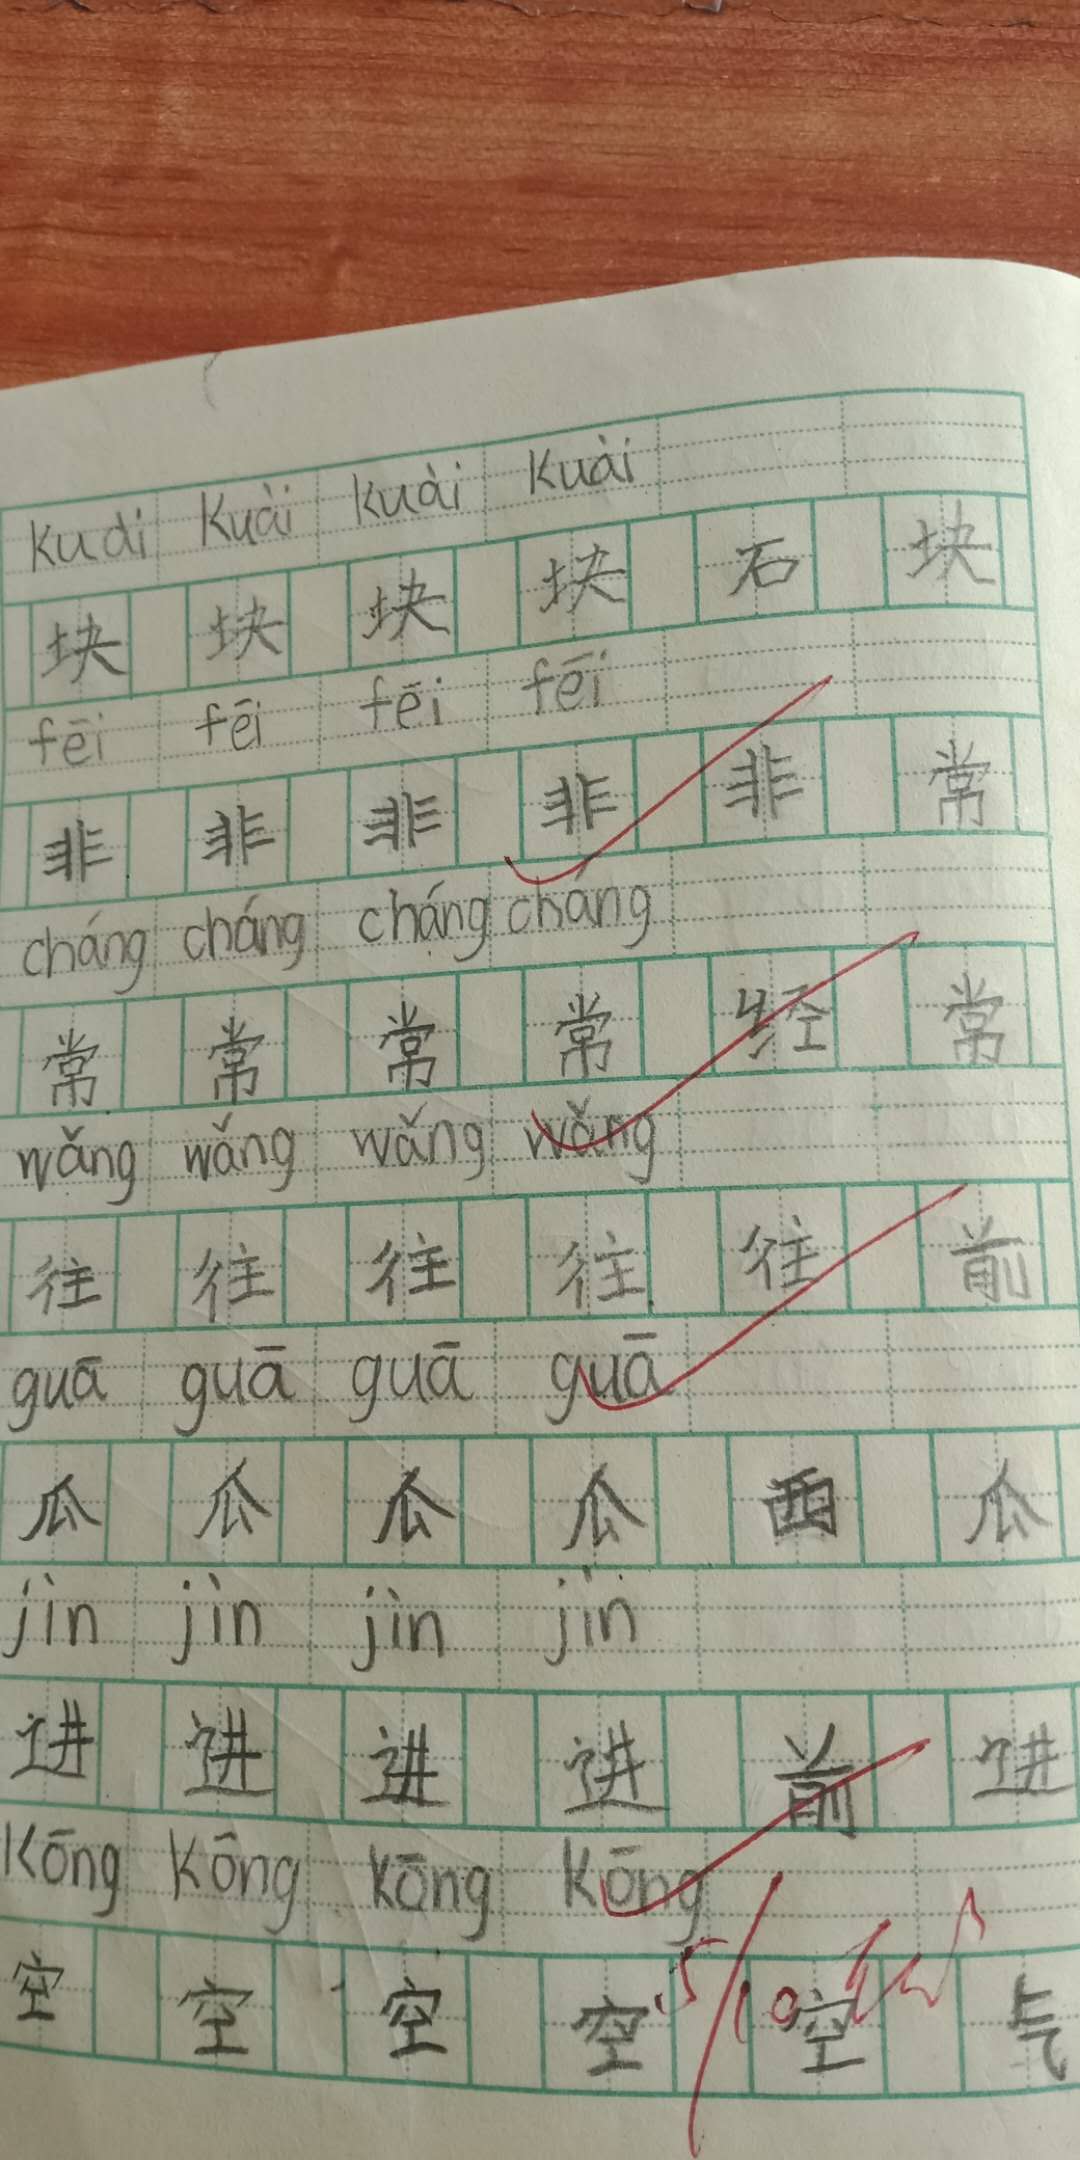 kuài kuài kuài kuài
块 块 块 块 石 块
fēi fēi fēi fēi
非 非 非 非 非 常
cháng cháng cháng cháng
常 常 常 常 经 常
wǎng wǎng wǎng wǎng
往 往 往 往 往 前
guā guā guā guā
瓜 瓜 瓜 瓜 西 瓜
jìn jìn jìn jìn
进 进 进 进 前 进
kōng kōng kōng kōng
空 空 空 空 空 气
5/10